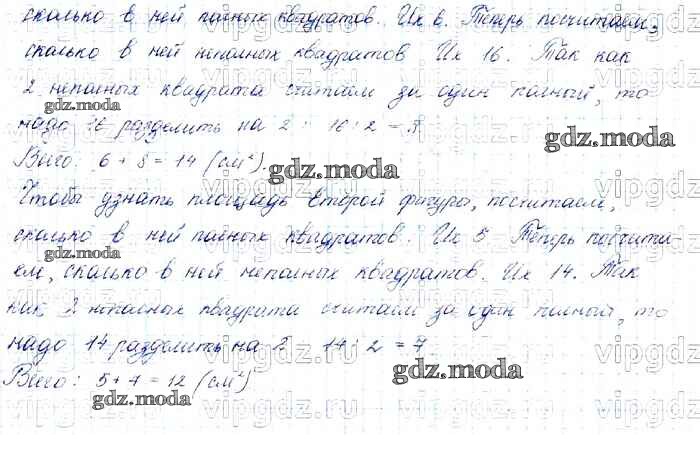 сколько в ней полных квадратов. Их 6. Теперь посчитаем,
сколько в ней неполных квадратов Их 16. Так как
2 неполных квадрата считаем за один полный, то
gdz.moda
надо 16 разделить на 2 : 16 : 2 = 8
gdz.moda
Всего: 6 + 8 = 14 (см²).
gdz.moda
Чтобы узнать площадь второй фигуры, посчитаем,
сколько в ней полных квадратов. Их 5 Теперь посчита
gdz.moda
ем, сколько в ней неполных квадратов. Их 14. Так
как 2 неполных квадрата считаем за один полный, то
надо 14 разделить на 2 14 : 2 = 7
gdz.moda
Всего: 5 + 7 = 12 (см²)
gdz.moda